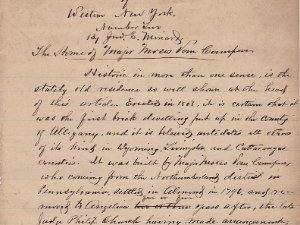 of
Western New York.
Number Four
By Jno. S. Minard
The Home of Major Moses Van Campen
Historic in more than one sense, is the
stately old residence so well shown at the head
of this article. Erected in 180 , it is certain that it
was the first brick dwelling put up in the County
of Allegany, and it is believed antedates all others
of its kind in Wyoming, Livingston and Cattaraugus
counties. It was built by Major Moses Van Campen
who coming from the Northumberland district in
Pennsylvania, settled in Almond in 1796, and re-
moved to Angelica two or three years after, the late
Judge Philip Church having made arrangements